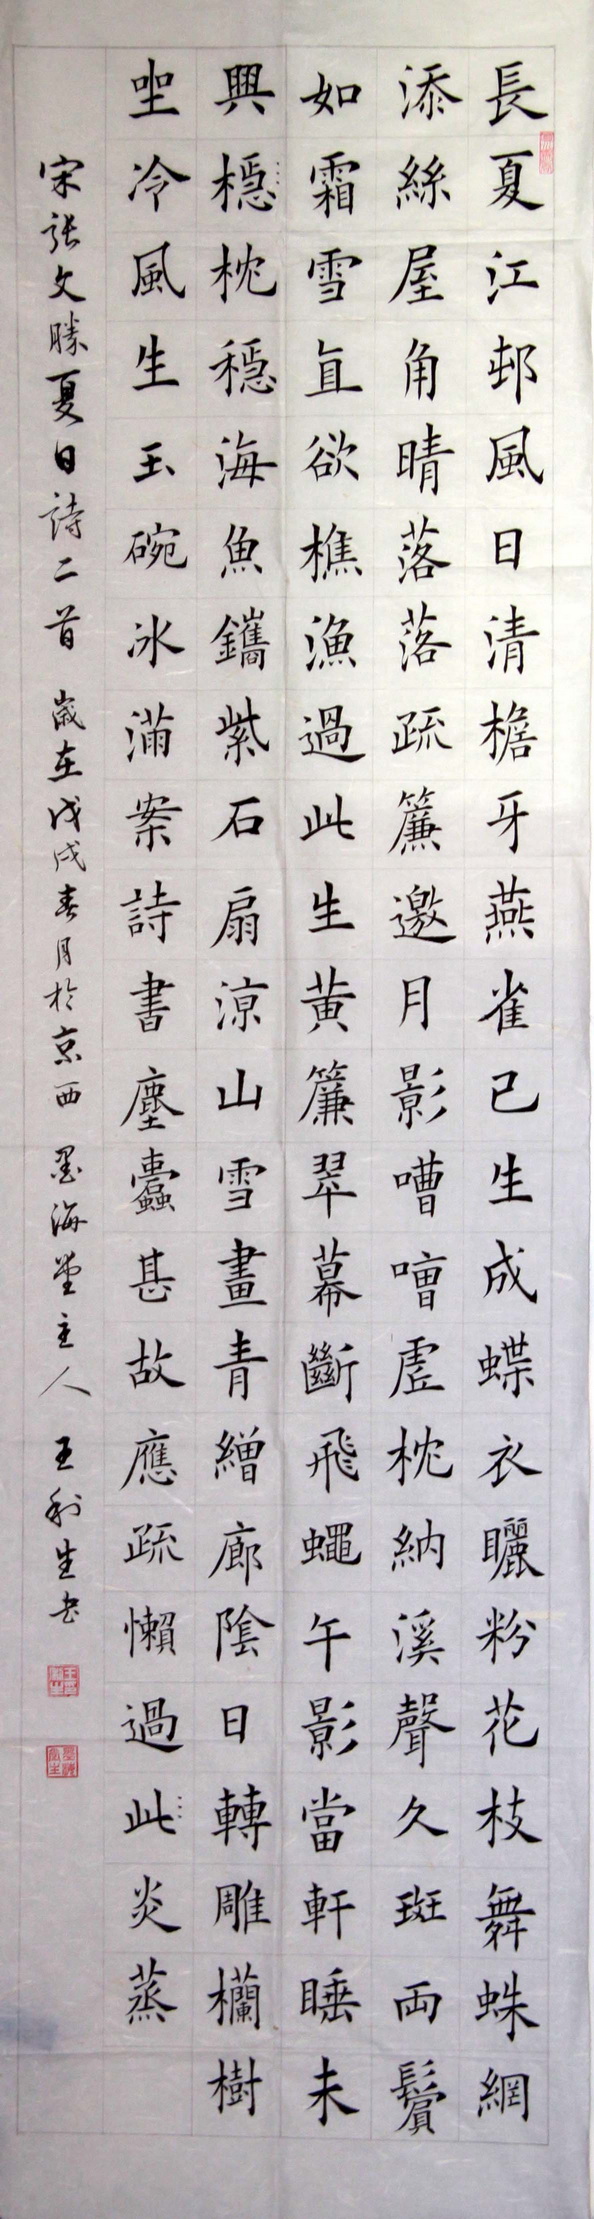 長夏江邨風日清檐牙燕雀已生成蝶衣曬粉花枝舞蛛網
添絲屋角晴落落疏簾邀月影嘈嘈虛枕納溪聲久斑兩鬢
如霜雪直欲樵漁過此生黃簾翠幕斷飛蠅午影當軒睡未
興檼枕穩海魚鑴紫石扇涼山雪畫青繒廊陰日轉雕欗樹
坐冷風生玉碗冰滿案詩書塵蠹甚故應疏懶過此炎蒸
宋張文勝夏日詩二首 歲在戊戌春月於京西 墨海堂主人 王利生書